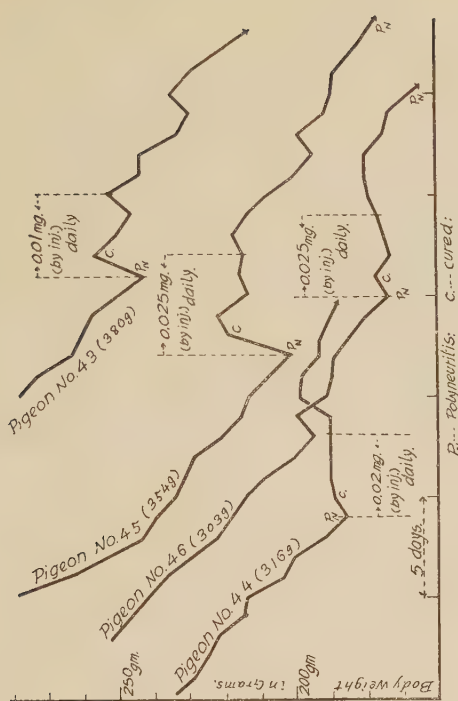 Pigeon No.43 (380g)
→0.01 mg.←
(by inj.)
daily
C.
PN
Pigeon No.45 (354g)
→0.025 mg.←
(by inj.) daily.
C
PN
PN
Pigeon No.46 (303g)
→0.025 mg.←
(by inj.)
daily
C.
PN
PN
Pigeon No.44 (316g)
→0.02 mg.←
(by inj.)
daily.
C.
PN
←5 days.→
250gm.
200gm
Body weight
in Grams.
PN... Polyneuritis: C.... cured: